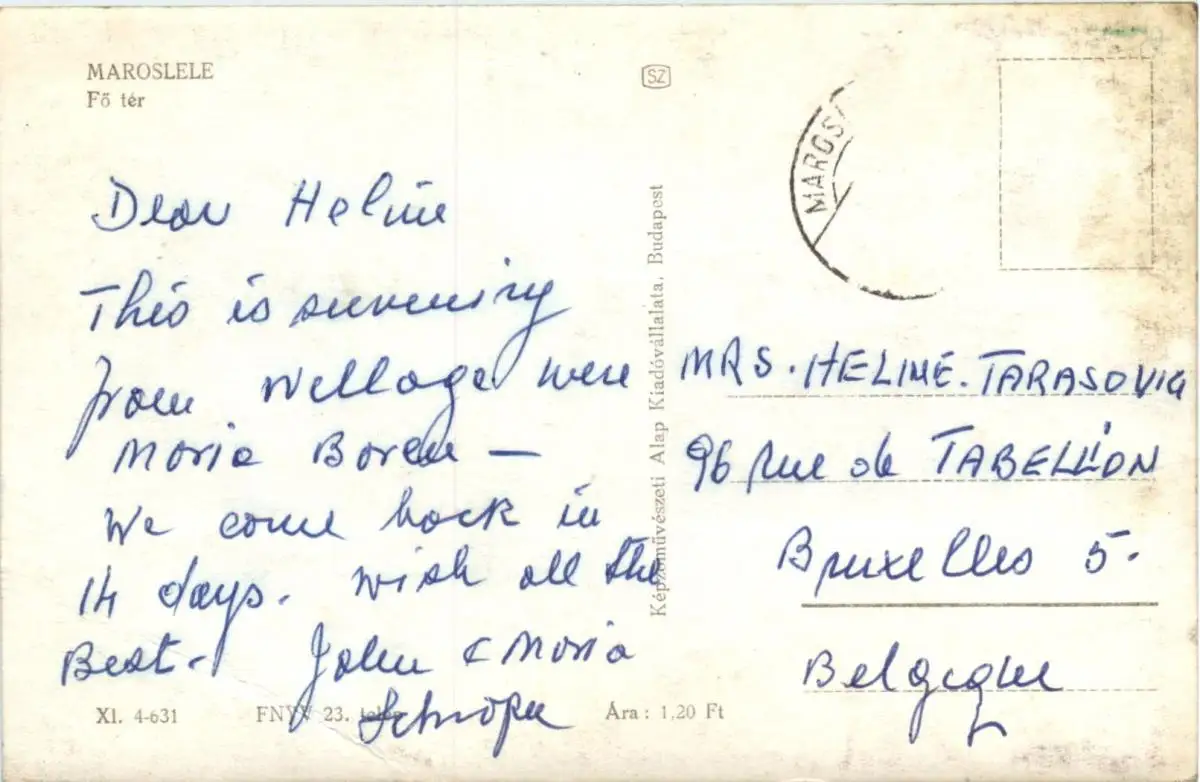 MAROSLELE
Fő tér
SZ
MAROS
Dear Heline
This is
from Wellage were
Maria Boren —
We come back in
14 days. Wish all the
Best. John & Maria
XI. 4-631 FNYV 23. telep Ára: 1,20 Ft
Képzőművészeti Alap Kiadóvállalata, Budapest
MRS. HELINE. TARASOVIG
96 Rue de TABELLION
Bruxelles 5.
Belgique